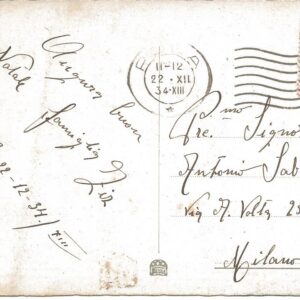 Auguro buon
Natale
famiglia
22-12-34/XIII
11-12
22·XII
34·XIII
Pre.mo Signo
Antonio Sab
Via A. Volta 23
Milano